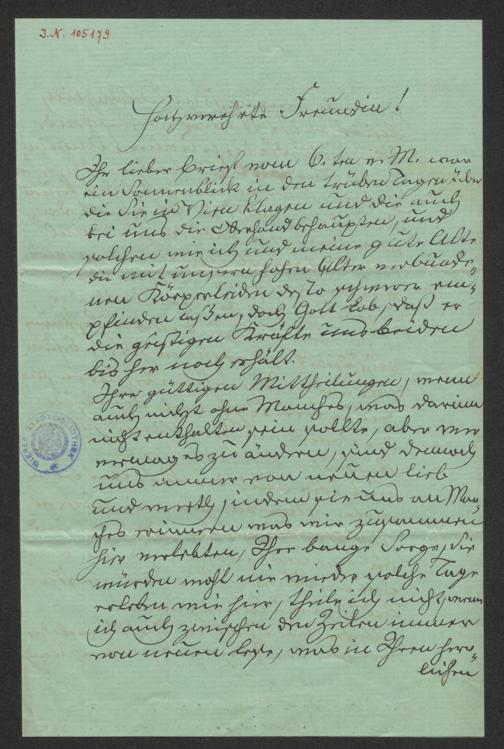 J.N. 105179
Hochverehrte Freundin!
Ihr lieber Brief vom 6. ten v. M. war
ein Sonnenblick in den trüben Tagen über
die Sie in Wien klagen und die auch
bei uns die Oberhand behaupten, und
solchen wie ich und meine gute Alte
die mit unsern hohen Alter verbunde=
nen Körperleiden desto schwerer em=
pfinden laßen, doch Gott Lob, daß er
die geistigen Kräfte uns beiden
bis her noch erhält.
Ihre güttigen Mittheilungen, wenn
auch nicht ohne Manches, was darinn
nicht enthalten sein sollte, aber wer
vermag es zu ändern, sind dennoch
uns immer von neuen lieb
und werth, indem sie uns an Man=
ches erinnern was wir zusammen
hier verlebten, Ihre bange Sorge, Sie
würden wohl nie wieder solche Tage
erleben wie hier, theile ich nicht, wenn
ich auch zwischen den Zeilen immer
von neuen lese, was in Ihren herr=
lichen
WIENER STADTBIBLIOTHEK